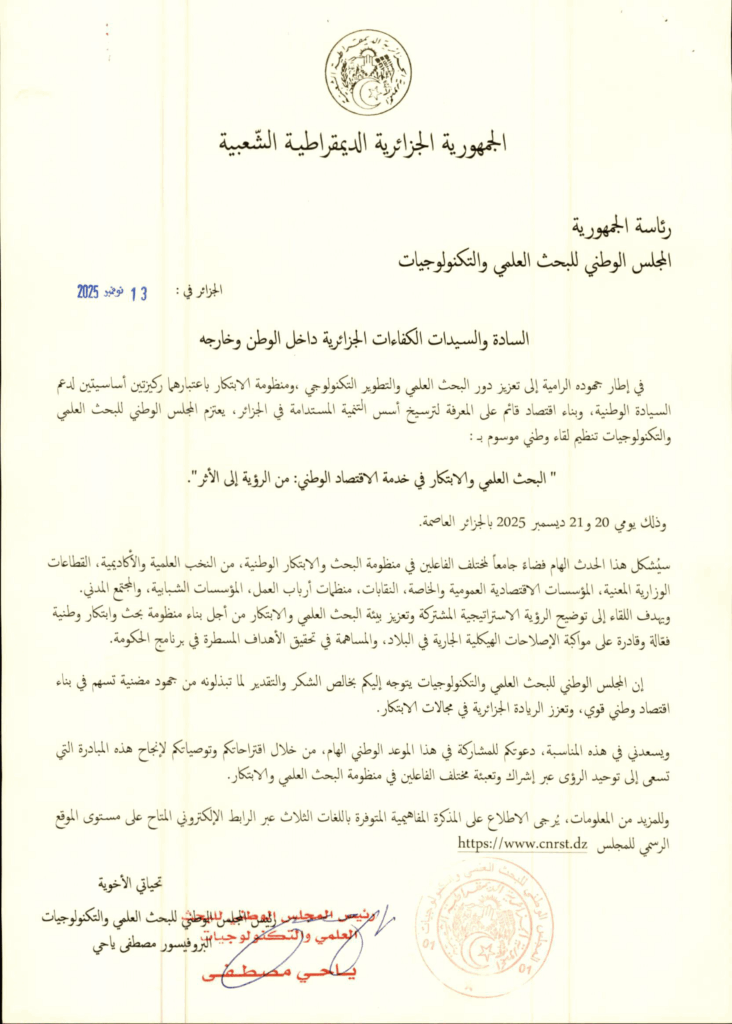 الجمهورية الجزائرية الديمقراطية الشّعبية
رئاسة الجمهورية
المجلس الوطني للبحث العلمي والتكنولوجيات
الجزائر في : 13 نوفمبر 2025
السادة والسيدات الكفاءات الجزائرية داخل الوطن وخارجه
في إطار جهوده الرامية إلى تعزيز دور البحث العلمي والتطوير التكنولوجي ،ومنظومة الابتكار باعتبارهما ركيزتين أساسيتين لدعم
السيادة الوطنية، وبناء اقتصاد قائم على المعرفة لترسيخ أسس التنمية المستدامة في الجزائر، يعتزم المجلس الوطني للبحث العلمي
والتكنولوجيات تنظيم لقاء وطني موسوم بـ :
" البحث العلمي والابتكار في خدمة الاقتصاد الوطني: من الرؤية إلى الأثر".
وذلك يومي 20 و21 ديسمبر 2025 بالجزائر العاصمة.
سيُشكل هذا الحدث الهام فضاءً جامعاً لمختلف الفاعلين في منظومة البحث والابتكار الوطنية، من النخب العلمية والأكاديمية، القطاعات
الوزارية المعنية، المؤسسات الاقتصادية العمومية والخاصة، النقابات، منظمات أرباب العمل، المؤسسات الشبابية، والمجتمع المدني.
ويهدف اللقاء إلى توضيح الرؤية الاستراتيجية المشتركة وتعزيز بيئة البحث العلمي والابتكار من أجل بناء منظومة بحث وابتكار وطنية
فعّالة وقادرة على مواكبة الإصلاحات الهيكلية الجارية في البلاد، والمساهمة في تحقيق الأهداف المسطرة في برنامج الحكومة.
إن المجلس الوطني للبحث العلمي والتكنولوجيات يتوجه إليكم بخالص الشكر والتقدير لما تبذلونه من جهود مضنية تسهم في بناء
اقتصاد وطني قوي، وتعزز الريادة الجزائرية في مجالات الابتكار.
ويسعدني في هذه المناسبة، دعوتكم للمشاركة في هذا الموعد الوطني الهام، من خلال اقتراحاتكم وتوصياتكم لإنجاح هذه المبادرة التي
تسعى إلى توحيد الرؤى عبر إشراك وتعبئة مختلف الفاعلين في منظومة البحث العلمي والابتكار.
وللمزيد من المعلومات، يُرجى الاطلاع على المذكرة المفاهيمية المتوفرة باللغات الثلاث عبر الرابط الإلكتروني المتاح على مستوى الموقع
الرسمي للمجلس https://www.cnrst.dz
تحياتي الأخوية
رئيس المجلس الوطني للبحث العلمي والتكنولوجيات
البروفيسور مصطفى ياحي
رئيس المجلس الوطني للبحث
العلمي والتكنولوجيات
ياحي مصطفى
01
01